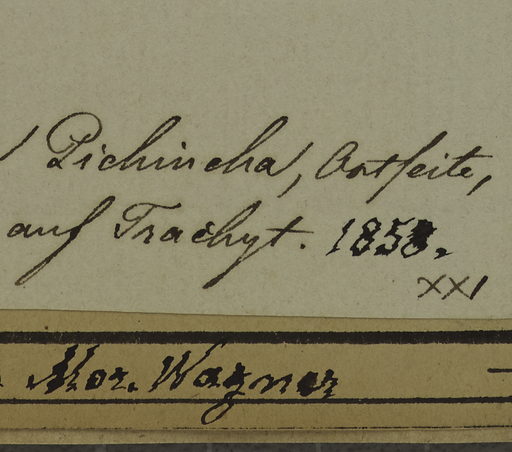 Pichincha, Ostseite,
auf Trachyt. 1858.
XXI
Mor. Wagner